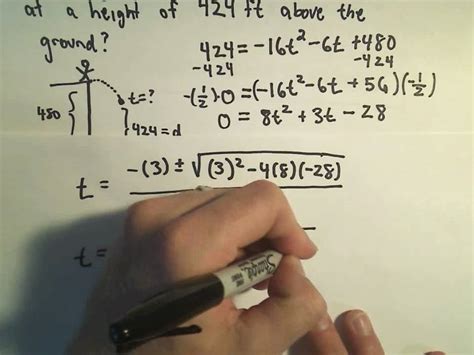 at a height of 424 ft above the
ground?
424 = -16t² - 6t + 480
-424 -424
-(½)·0 = (-16t² - 6t + 56)(-½)
0 = 8t² + 3t - 28
t=?
480
424 = d
t = -(3) ± √(3)² - 4(8)(-28)
t =
Sharpie